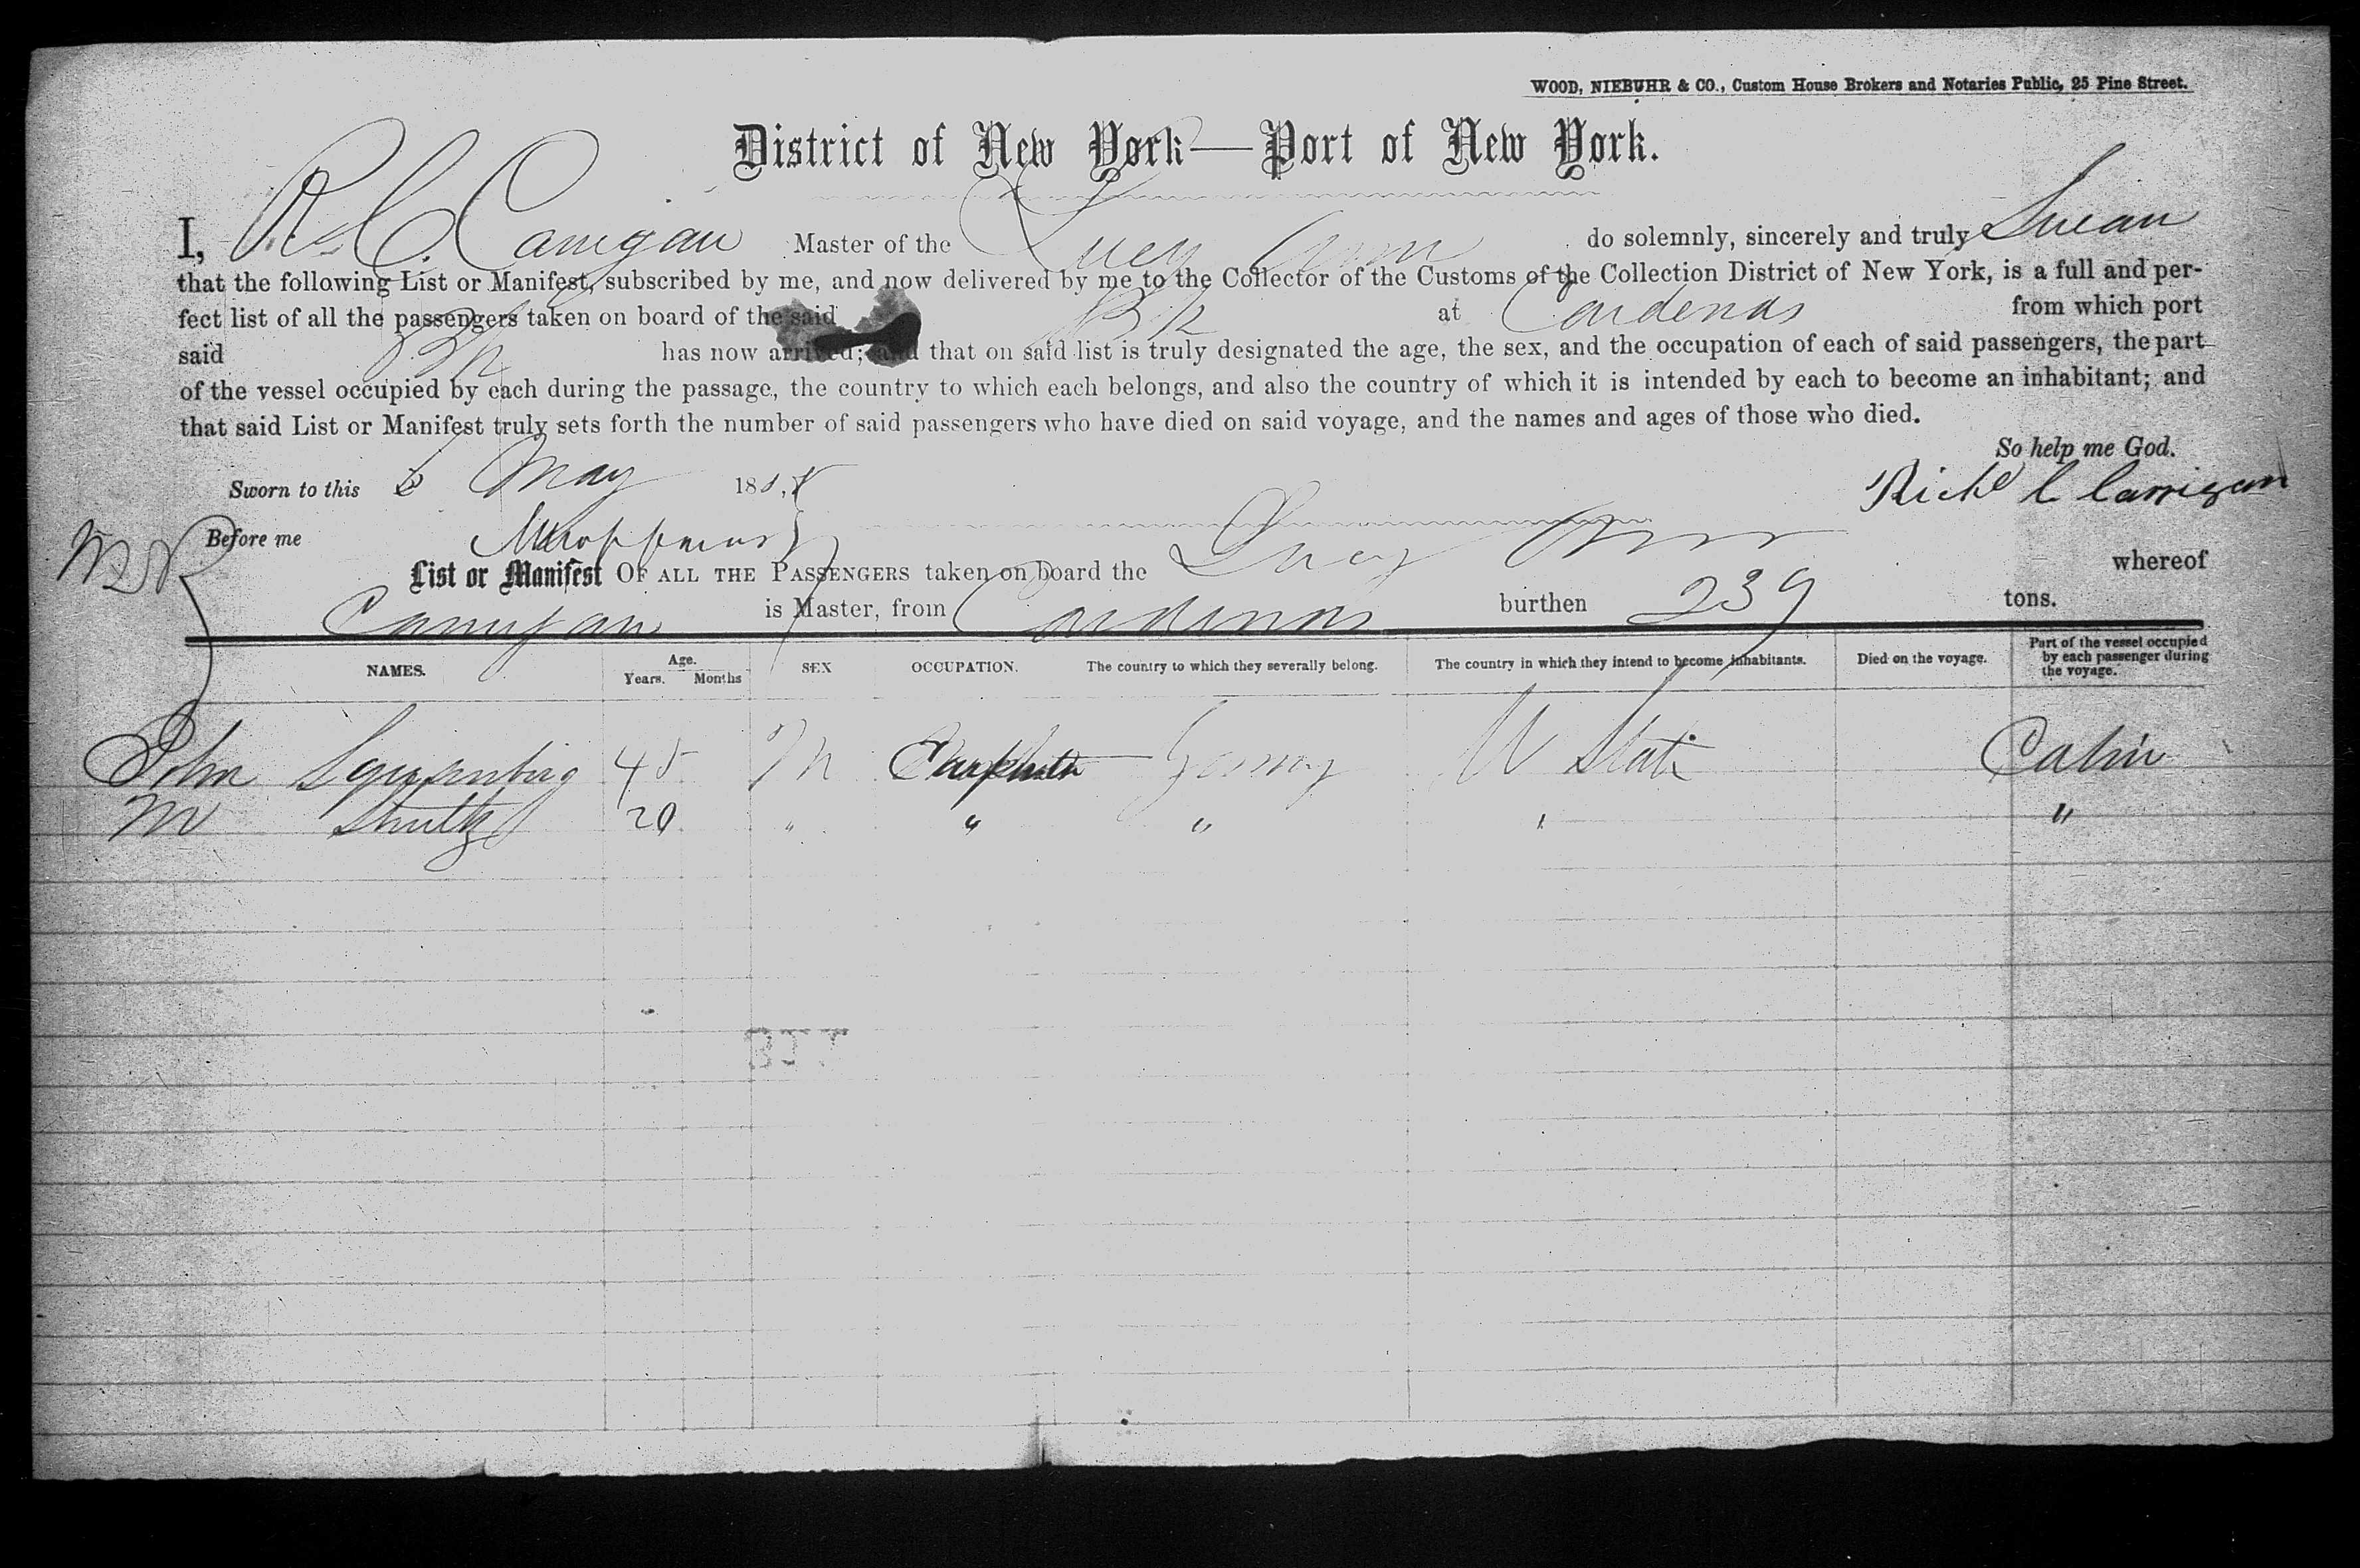 WOOD, NIEBUHR & CO., Custom House Brokers and Notaries Public, 25 Pine Street.
District of New York—Port of New York.
I, C. Carrigan Master of the Lucy Ann do solemnly, sincerely and truly Swear
that the following List or Manifest, subscribed by me, and now delivered by me to the Collector of the Customs of the Collection District of New York, is a full and per-
fect list of all the passengers taken on board of the said Bk at Cardenas from which port
said Bk has now arrived; and that on said list is truly designated the age, the sex, and the occupation of each of said passengers, the part
of the vessel occupied by each during the passage, the country to which each belongs, and also the country of which it is intended by each to become an inhabitant; and
that said List or Manifest truly sets forth the number of said passengers who have died on said voyage, and the names and ages of those who died.
So help me God.
Sworn to this 6 May 18 Richd C Carrigan
Before me
List or Manifest OF ALL THE PASSENGERS taken on board the Lucy Ann whereof
Carrigan is Master, from Cardenas burthen 239 tons.
NAMES. Age. Years. Months SEX OCCUPATION. The country to which they severally belong. The country in which they intend to become inhabitants. Died on the voyage. Part of the vessel occupied by each passenger during the voyage.
John 45 M Germany U State Cabin
M Shultz 20 " " " " "